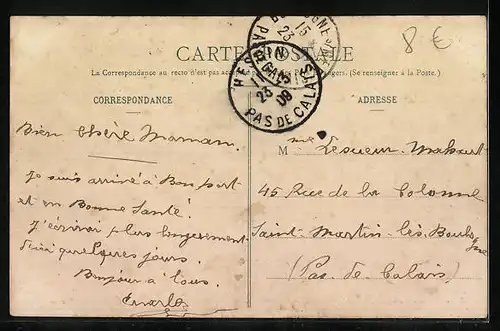 8€
CARTE POSTALE
La Correspondance au recto n'est pas acceptée
gers. (Se renseigner à la Poste.)
CORRESPONDANCE
ADRESSE
PAS DE CALAIS
15
23
23
09
Bien Chère Maman,
Je suis arrivé à Bon port
et en Bonne Santé.
J'écrirai plus longuement
d'ici quelques jours.
Bonjour à tous.
Charles
Mme Lesueur
45 Rue de la Colonne
Saint-Martin-lès-Boulogne
(Pas de Calais)